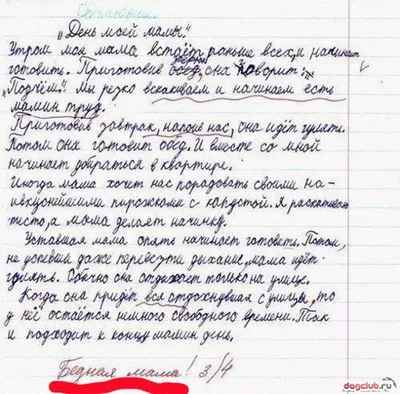 Сочинение.
„День моей мамы".
Утром моя мама встаёт раньше всех, и начинает
готовить. Приготовив обед, она говорит:
„Подъём". Мы резко вскакиваем и начинаем есть
мамин труд.
Приготовив завтрак, напоив нас, она идёт гулять.
Потом она готовит обед. И вместе со мной
начинает добраться в квартире.
Иногда мама хочет нас порадовать своими на-
ивкуснейшими пирожками с капустой. Я раскатываю
тесто, а мама делает начинку.
Уставшая мама опять начинает готовить. Потом,
не успевая даже перевезти дыхание, мама идёт
гулять. Обычно она отдыхает только на улице.
Когда она придёт вся отдохнувшая с улицы, то
у неё остаётся немного свободного времени. Так
и подходит к концу мамин день.
Бедная мама! 3/4
dogclub.ru